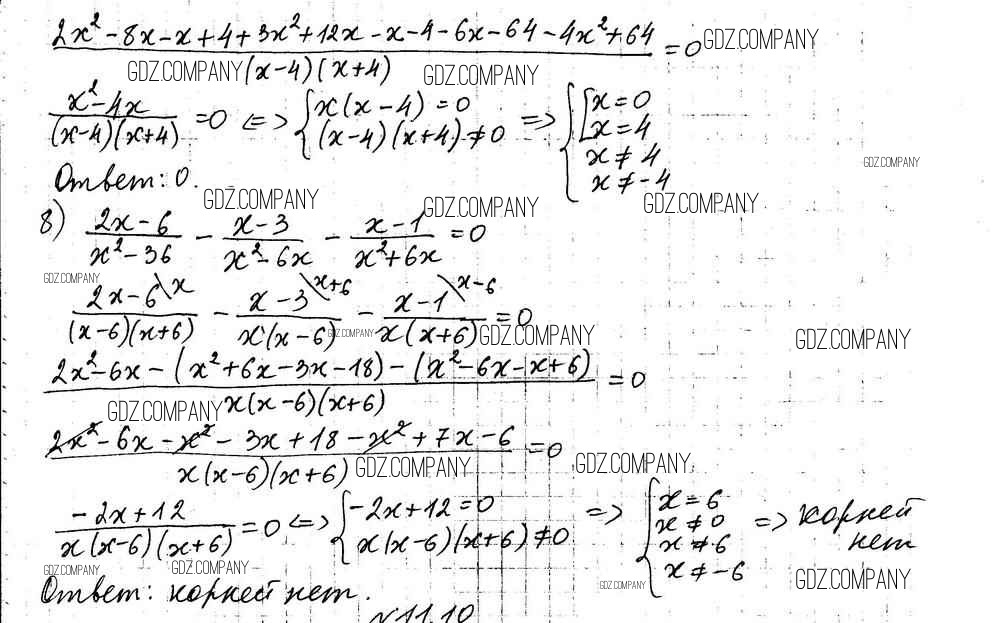 2x² - 8x - x + 4 + 3x² + 12x - x - 4 - 6x - 64 - 4x² + 64 = 0 GDZ.COMPANY
GDZ.COMPANY (x-4)(x+4) GDZ.COMPANY
x² - 4x / (x-4)(x+4) = 0 <=> { x(x-4) = 0 (x-4)(x+4) ≠ 0 => { [ x = 0 x = 4 x ≠ 4 x ≠ -4
GDZ.COMPANY
Ответ: 0.
GDZ.COMPANY GDZ.COMPANY GDZ.COMPANY
8) 2x-6 / x²-36 - x-3 / x²-6x - x-1 / x²+6x = 0
GDZ.COMPANY
2x-6 \x / (x-6)(x+6) - x-3 \x+6 / x(x-6) - x-1 \x-6 / x(x+6) = 0
GDZ.COMPANY GDZ.COMPANY GDZ.COMPANY
2x² - 6x - (x² + 6x - 3x - 18) - (x² - 6x - x + 6) / x(x-6)(x+6) = 0
GDZ.COMPANY
2x² - 6x - x² - 3x + 18 - x² + 7x - 6 / x(x-6)(x+6) = 0
GDZ.COMPANY GDZ.COMPANY
-2x+12 / x(x-6)(x+6) = 0 <=> { -2x+12 = 0 x(x-6)(x+6) ≠ 0 => { x = 6 x ≠ 0 x ≠ 6 x ≠ -6 => корней нет
GDZ.COMPANY GDZ.COMPANY GDZ.COMPANY GDZ.COMPANY
Ответ: корней нет.
N 11.10